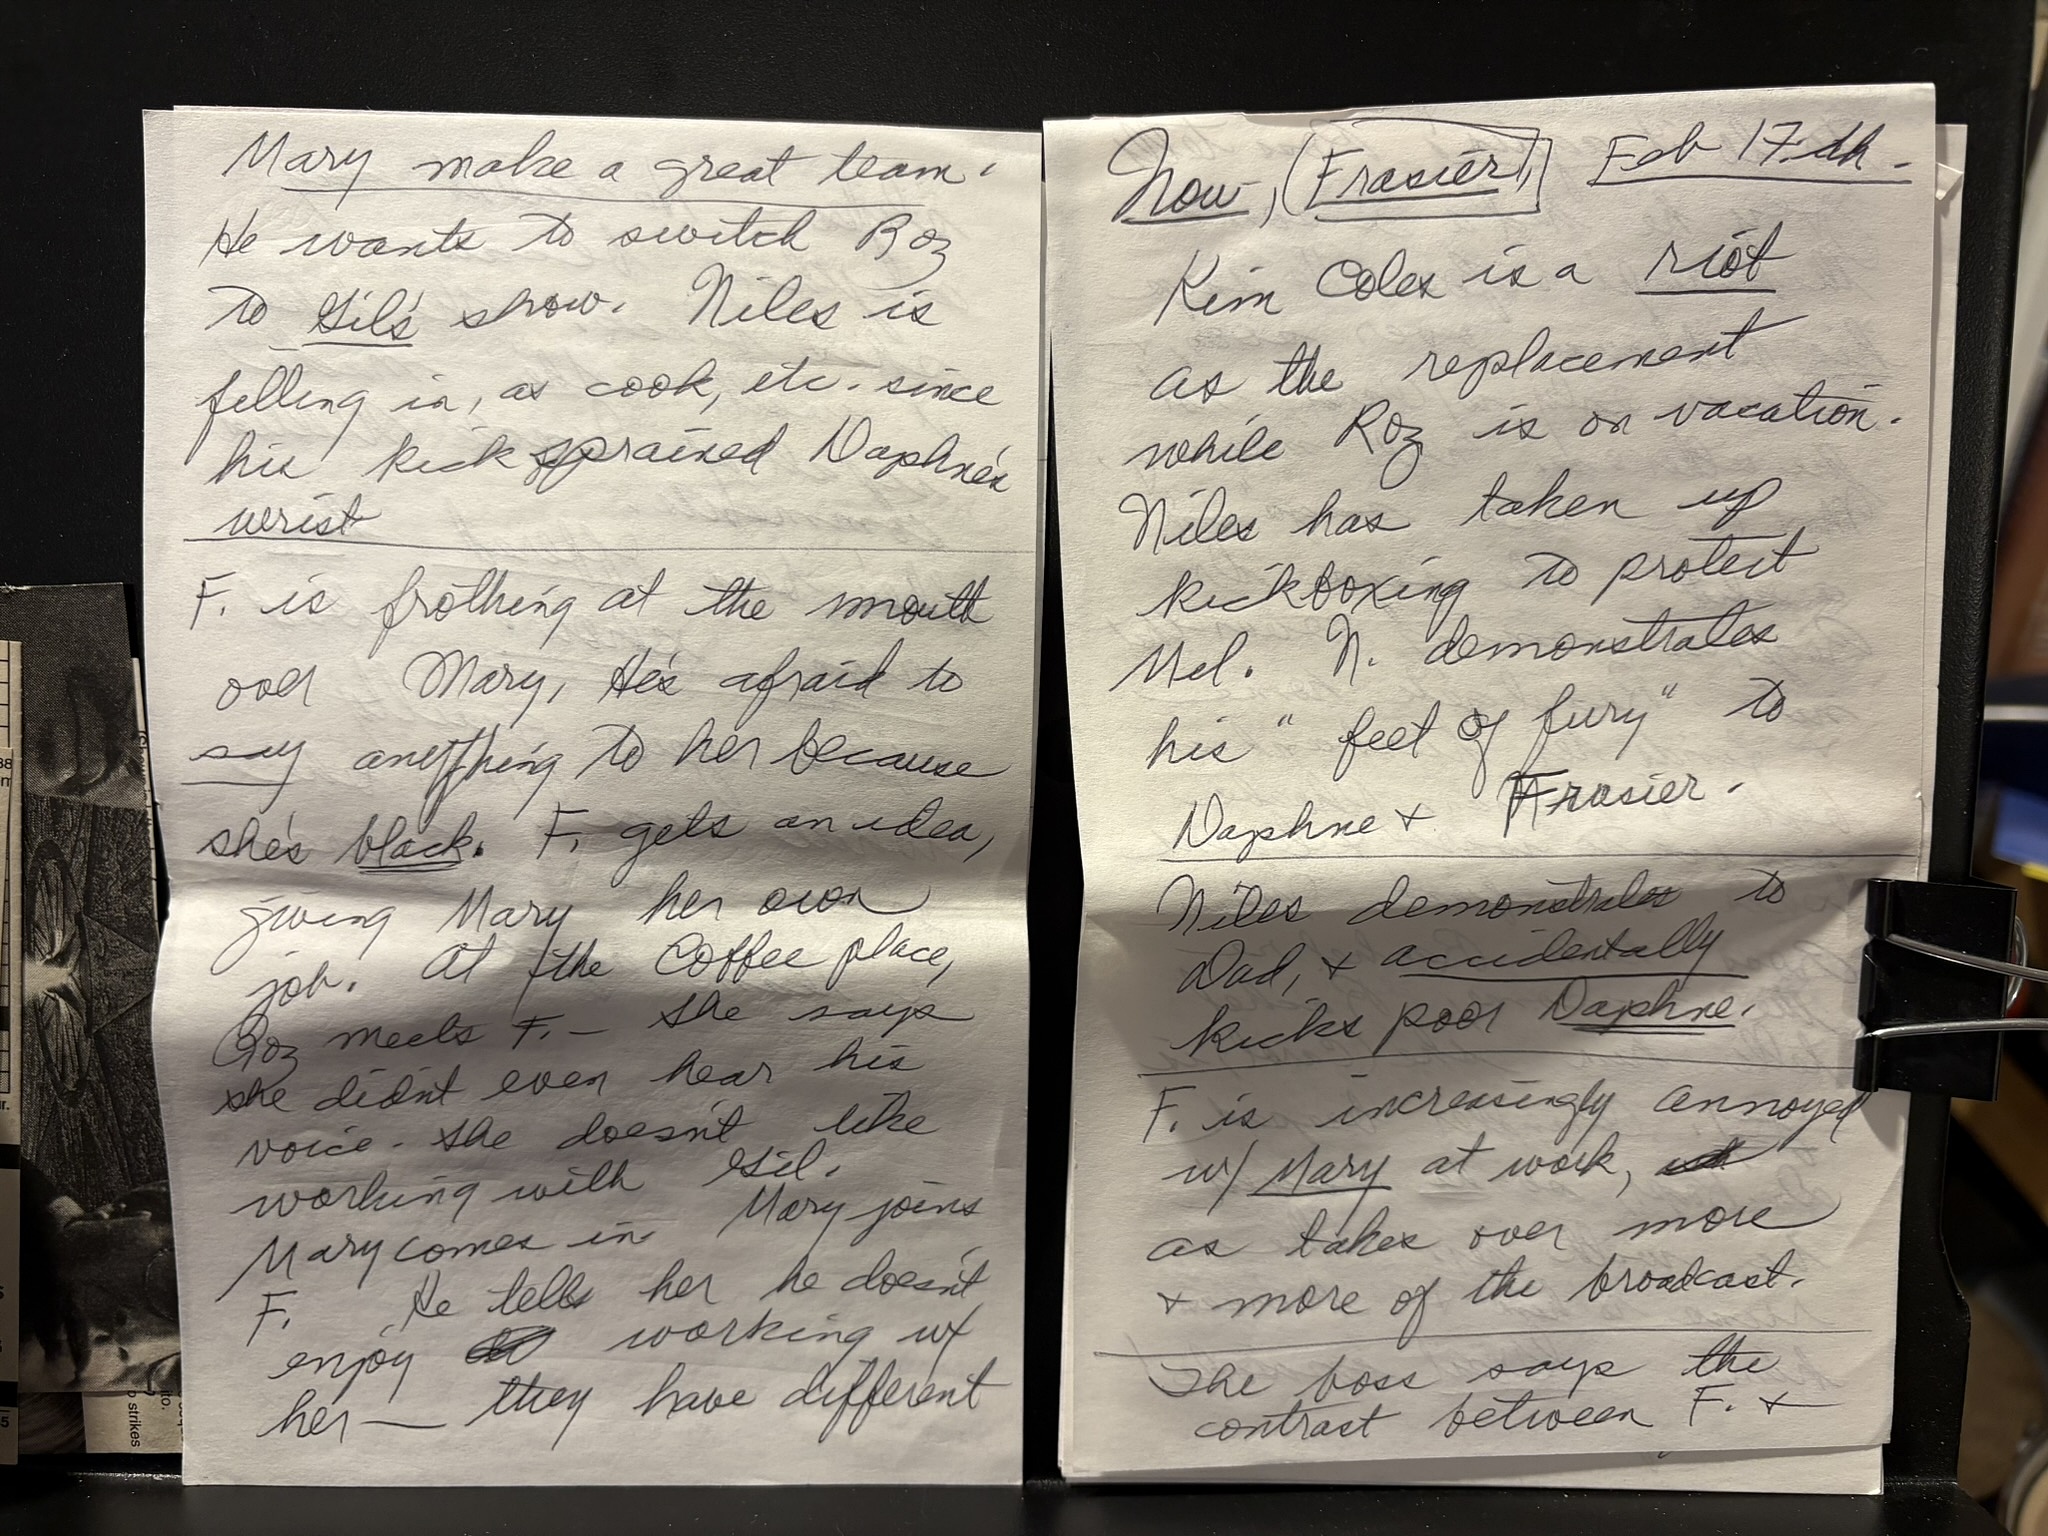 Now, (Frasier), Feb 17th.
Kim Coles is a riot
as the replacement
while Roz is on vacation.
Niles has taken up
kickboxing to protect
Mel. N. demonstrates
his "feet of fury" to
Daphne + Frasier.
Niles demonstrates to
Dad, + accidentally
kicks poor Daphne.
F. is increasingly annoyed
w/ Mary at work,
as takes over more
+ more of the broadcast.
The boss says the
contrast between F. +
Mary make a great team.
He wants to switch Roz
to Gil's show. Niles is
filling in, as cook, etc. since
his kick sprained Daphne's
wrist
F. is frothing at the mouth
over Mary, He's afraid to
say anything to her because
she's black. F. gets an idea,
giving Mary her own
job. At the Coffee place,
Roz meets F. — She says
she didn't even hear his
voice. She doesn't like
working with Gil.
Mary comes in. Mary joins
F. He tells her he doesn't
enjoy working w/
her — they have different
strikes